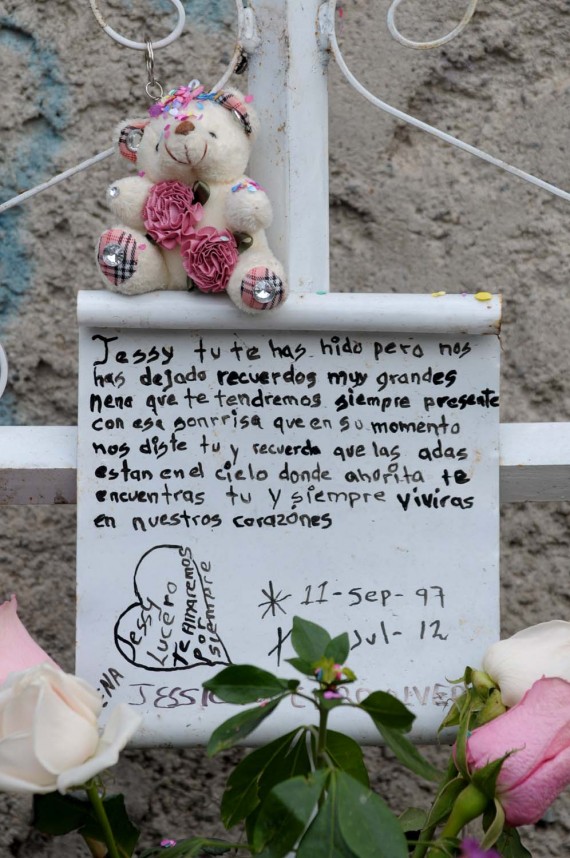 Jessy tu te has hido pero nos
has dejado recuerdos muy grandes
nena que te tendremos siempre presente
con esa sonrrisa que en su momento
nos diste tu y recuerda que las adas
estan en el cielo donde ahorita te
encuentras tu y siempre viviras
en nuestros corazónes
Jessy
Lucero
Te Amaremos
Por
siempre
11-Sep-97
Jul-12